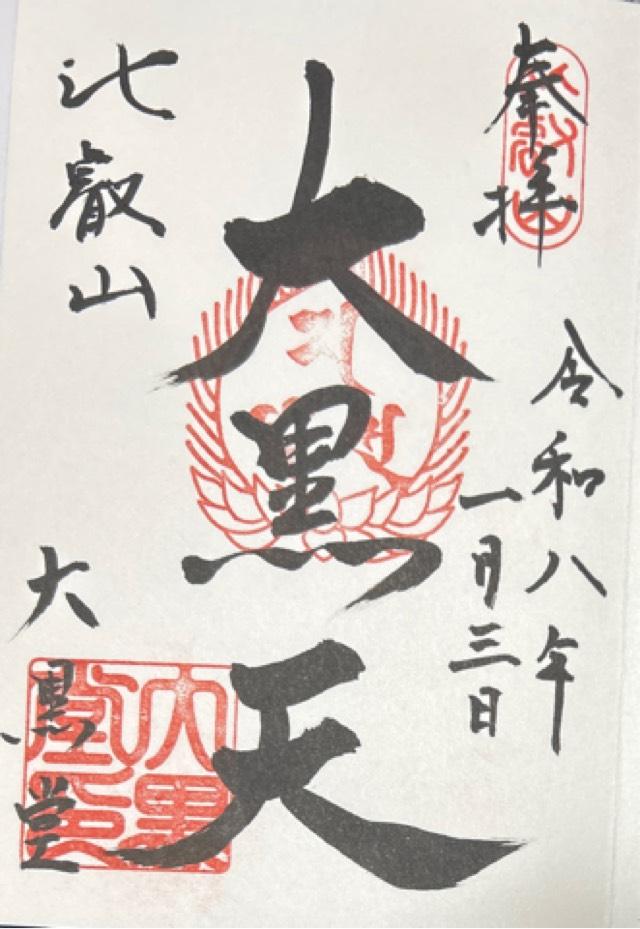 奉拝
令和八年
一月三日
大黒天
比叡山
大黒堂
大黒堂印